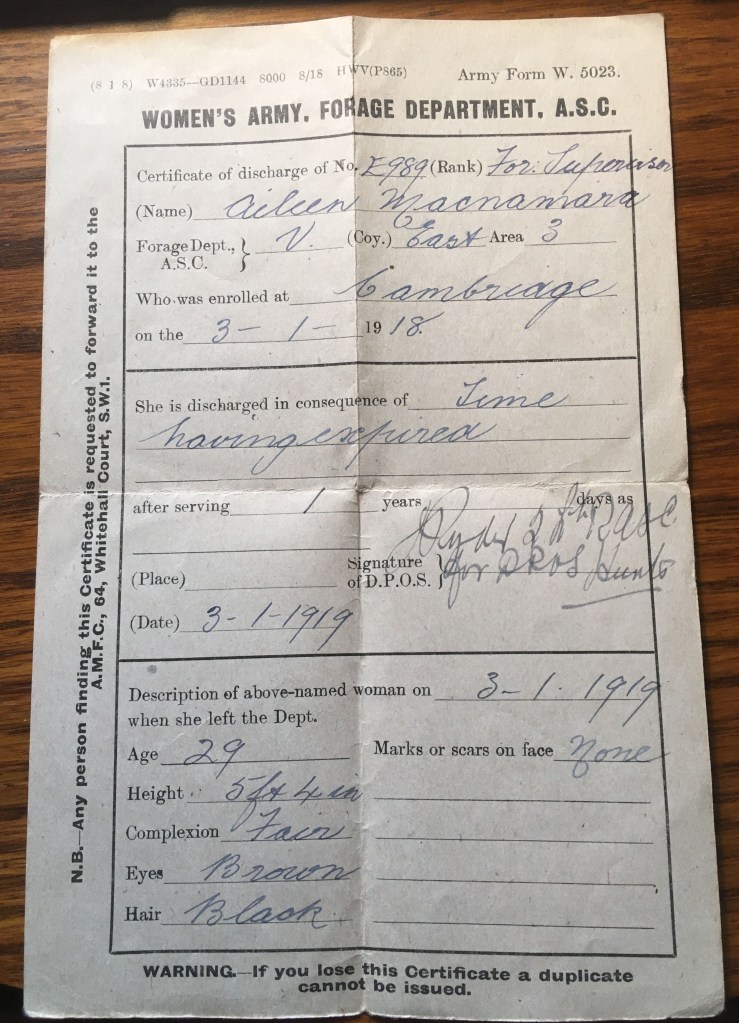 (8 1 8) W4335—GD1144 8000 8/18 HWV(P865) Army Form W. 5023.
WOMEN'S ARMY. FORAGE DEPARTMENT, A.S.C.
Certificate of discharge of No. E989 (Rank) For: Supervisor
(Name) Aileen Macnamara
Forage Dept., A.S.C. } V. (Coy.) East Area 3
Who was enrolled at Cambridge
on the 3-1- 1918.
She is discharged in consequence of Time
having expired
after serving 1 years days as
(Place) Signature of D.P.O.S. } for DPOS Hunts
(Date) 3-1-1919
Description of above-named woman on 3-1.1919
when she left the Dept.
Age 29 Marks or scars on face None
Height 5ft 4in
Complexion Fair
Eyes Brown
Hair Black
WARNING.—If you lose this Certificate a duplicate
cannot be issued.
N.B.—Any person finding this Certificate is requested to forward it to the
A.M.F.C., 64, Whitehall Court, S.W.1.